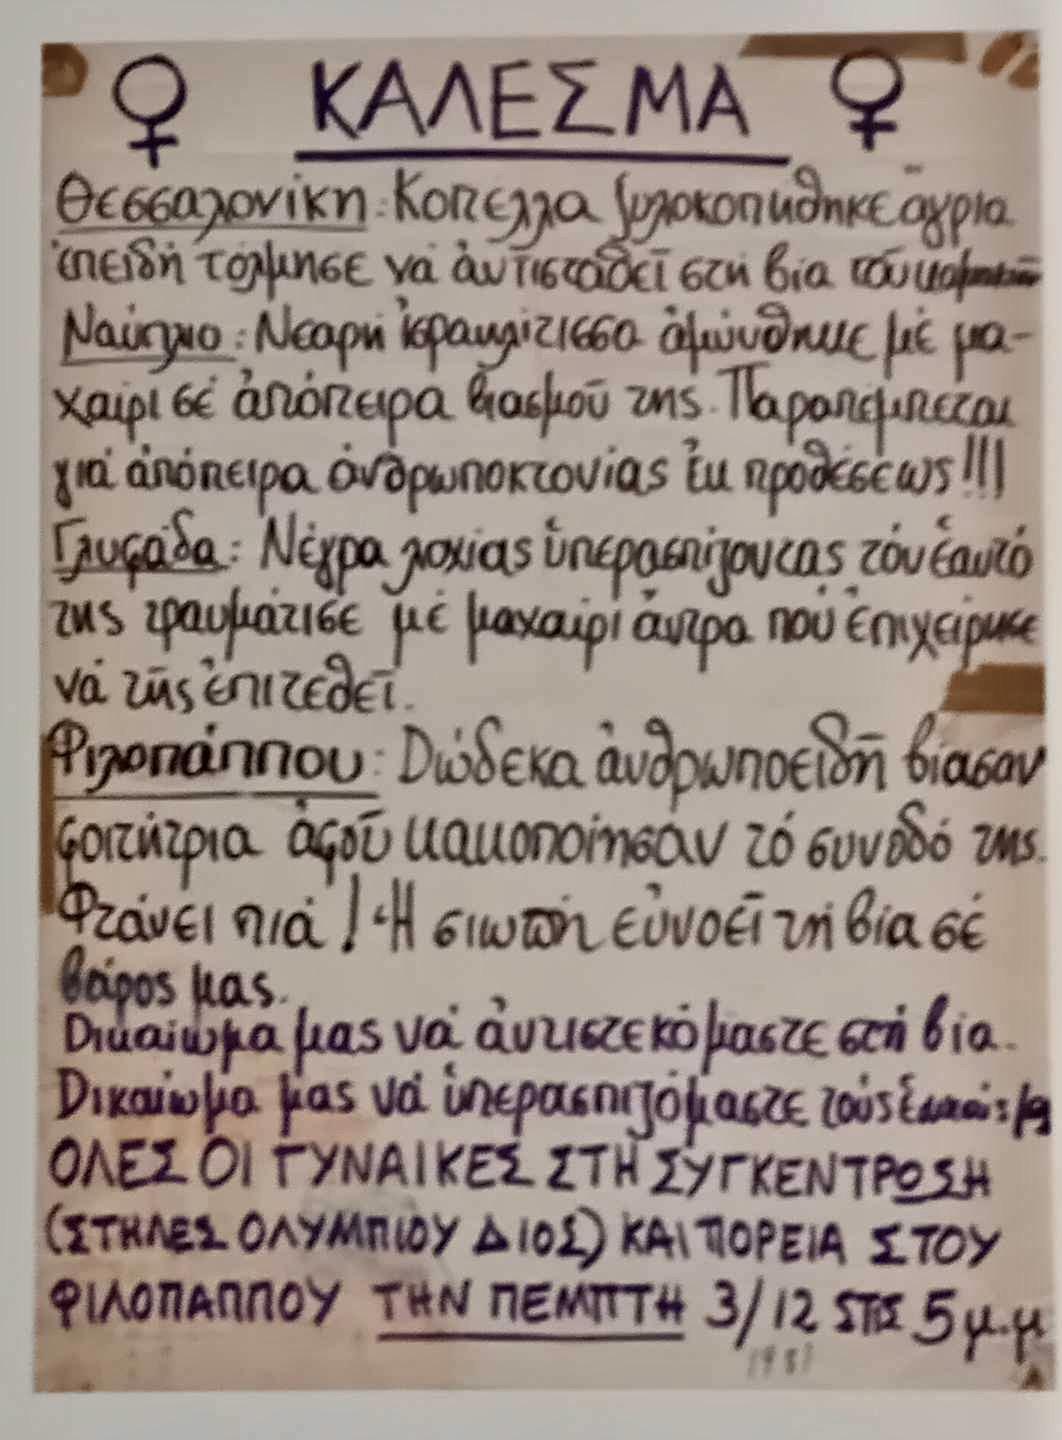 ♀ ΚΑΛΕΣΜΑ ♀
Θεσσαλονίκη: Κοπέλλα ξυλοκοπήθηκε ἄγρια
ἐπειδή τόλμησε νά ἀντισταθεῖ στή βία τοῦ
Ναύπλιο: Νεαρή ἰσραηλίτισσα ἀμύνθηκε μέ μα-
χαίρι σέ ἀπόπειρα βιασμοῦ της. Παραπέμπεται
γιά ἀπόπειρα ἀνθρωποκτονίας ἐκ προθέσεως!!!
Γλυφάδα: Νέγρα λοχίας ὑπερασπίζοντας τόν ἑαυτό
της τραυμάτισε μέ μαχαίρι ἄντρα πού ἐπιχείρησε
νά τῆς ἐπιτεθεῖ.
Φιλοπάππου: Δώδεκα ἀνθρωποειδῆ βίασαν
φοιτήτρια ἀφοῦ κακοποίησαν τό συνοδό της.
Φτάνει πιά! Ἡ σιωπή εὐνοεῖ τή βία σέ
βάρος μας.
Δικαίωμα μας νά ἀντιστεκόμαστε στή βία.
Δικαίωμα μας νά ὑπερασπιζόμαστε τούς ἑαυτούς μας
ΟΛΕΣ ΟΙ ΓΥΝΑΙΚΕΣ ΣΤΗ ΣΥΓΚΕΝΤΡΩΣΗ
(ΣΤΗΛΕΣ ΟΛΥΜΠΙΟΥ ΔΙΟΣ) ΚΑΙ ΠΟΡΕΙΑ ΣΤΟΥ
ΦΙΛΟΠΑΠΠΟΥ ΤΗΝ ΠΕΜΠΤΗ 3/12 ΣΤΙΣ 5 μ.μ
1981